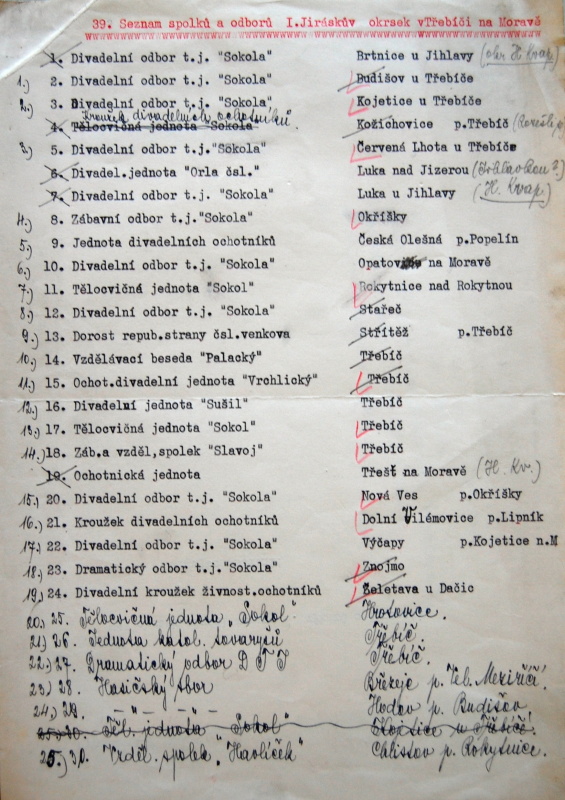 39. Seznam spolků a odborů I.Jiráskův okrsek vTřebíči na Moravě
1. Divadelní odbor t.j. "Sokola" Brtnice u Jihlavy (okr. H. Kvap.)
1.) 2. Divadelní odbor t.j. "Sokola" Budišov u Třebíče
2.) 3. Divadelní odbor t.j. "Sokola" Kojetice u Třebíče
Kroužek divadelních ochotníků.
4. Tělocvičná jednota "Sokola" Kožichovice p.Třebíč
3.) 5. Divadelní odbor t.j."Sokola" Červená Lhota u Třebíče
6. Divadel.jednota "Orla čsl." Luka nad Jizerou
7. Divadelní odbor t.j. "Sokola" Luka u Jihlavy (H. Kvap.)
4.) 8. Zábavní odbor t.j."Sokola" Okříšky
5.) 9. Jednota divadelních ochotníků Česká Olešná p.Popelín
6.) 10. Divadelní odbor t.j. "Sokola" Opatov na Moravě
7.) 11. Tělocvičná jednota "Sokol" Rokytnice nad Rokytnou
8.) 12. Divadelní odbor t.j. "Sokola" Stařeč
9.) 13. Dorost repub.strany čsl.venkova Střítěž p.Třebíč
10.) 14. Vzdělávací beseda "Palacký" Třebíč
11.) 15. Ochot.divadelní jednota "Vrchlický" Třebíč
12.) 16. Divadelní jednota "Sušil" Třebíč
13.) 17. Tělocvičná jednota "Sokol" Třebíč
14.) 18. Záb.a vzděl,spolek "Slavoj" Třebíč
19. Ochotnická jednota Třešť na Moravě (H. Kv.)
15.) 20. Divadelní odbor t.j. "Sokola" Nová Ves p.Okříšky
16.) 21. Kroužek divadelních ochotníků Dolní Vilémovice p.Lipník
17.) 22. Divadelní odbor t.j. "Sokola" Výčapy p.Kojetice n.M
18.) 23. Dramatický odbor t.j."Sokola" Znojmo
19.) 24. Divadelní kroužek živnost.ochotníků Želetava u Dačic
20.) 25. Tělocvičná jednota „Sokol". Hrotovice.
21.) 26. Jednota katol. tovaryšů Třebíč.
22.) 27. Dramatický odbor DTJ Třebíč.
23.) 28. Hasičský sbor Březeje p. Vel. Meziříčí.
24.) 29. -„- -„- Hodov p. Budišov
25.) 30. Těl. jednota „Sokol" Kojetice u Třebíče.
25.) 30. Vzděl. spolek „Havlíček" Chlístov p. Rokytnice.